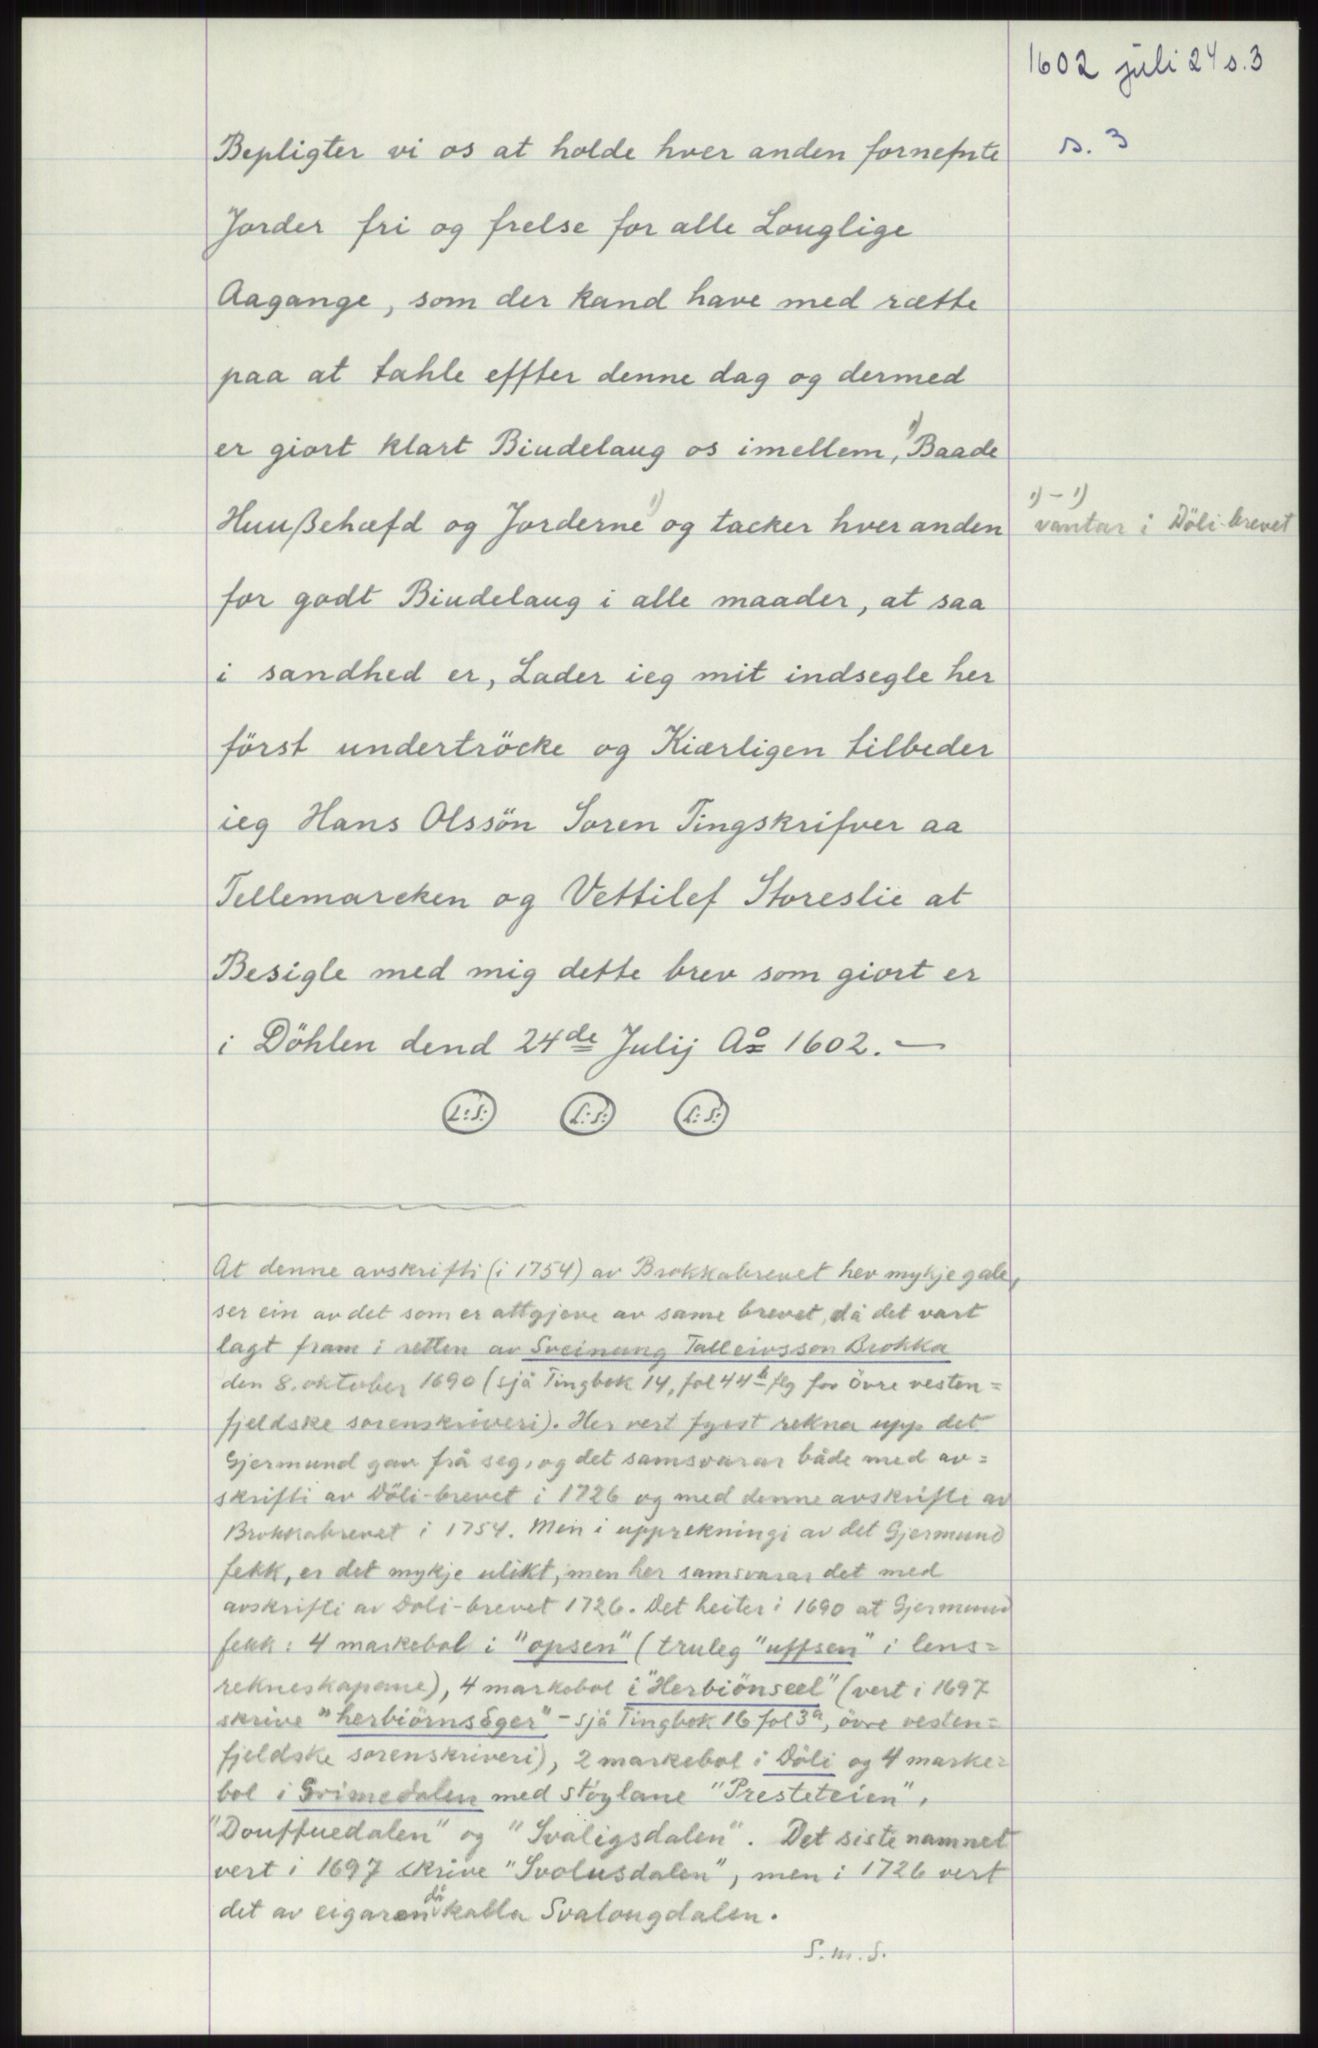 1602 juli 24 s.3
s. 3
Bepligter vi os at holde hver anden fornefnte
Jorder fri og frelse for alle Louglige
Aagange, som der kand have med rætte
paa at tahle effter denne dag og dermed
er giort klart Biudelaug os imellem, ¹⁾Baade
Huußehæfd og Jorderne¹⁾ og tacker hver anden
¹⁾ - ¹⁾
vantar i Döli-brevet
for godt Biudelaug i alle maader, at saa
i sandhed er, Lader ieg mit indsegle her
först undertröcke og Kiærligen tilbeder
ieg Hans Olssön Soren Tingskrifver aa
Tellemarcken og Vettilef Storeslie at
Besigle med mig dette brev som giort er
i Döhlen dend 24de Julij Ao 1602. —
L:S: L:S: L:S:
At denne avskrifti (i 1754) av Brokkabrevet hev mykje gale,
ser ein av det som er attgjeve av same brevet, då det vart
lagt fram i retten av Sveinung Talleivsson Brokka
den 8. oktober 1690 (sjå Tingbok 14, fol 44b flg for övre vesten=
fjeldske sorenskriveri). Her vert fyrst rekna upp det
Gjermund gav frå seg, og det samsvarar både med av=
skrifti av Döli-brevet i 1726 og med denne avskrifti av
Brokkabrevet i 1754. Men i upprekningi av det Gjermund
fekk, er det mykje ulikt, men her samsvarar det med
avskrifti av Doli-brevet 1726. Det heiter i 1690 at Gjermund
fekk: 4 markebol i "opsen" (truleg "uffsen" i lens=
rekneskapane), 4 markebol i "Herbiönseel" (vert i 1697
skrive "herbiörnsEger" - sjå Tingbok 16 fol 3a, övre vesten=
fjeldske sorenskriveri), 2 markebol i Döli og 4 marke=
bol i Grimedalen med stöylane "Presteteien",
"Douffuedalen" og "Svaligsdalen". Det siste namnet
vert i 1697 skrive "Svolusdalen", men i 1726 vert
det av eigaren då kalla Svalougdalen.
S. m. S.